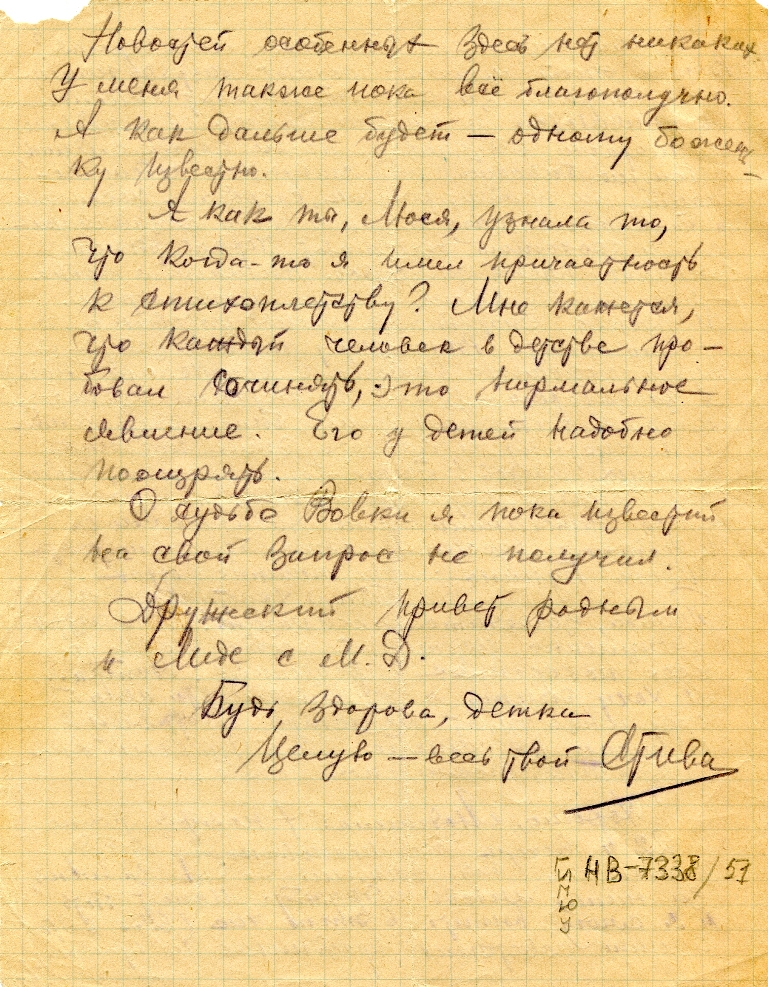 Новостей особенных здесь нет никаких.
У меня также пока всё благополучно.
А как дальше будет — одному божень-
ку известно.
А как ты, Люся, узнала то,
что когда-то я имел причастность
к стихоплетству? Мне кажется,
что каждый человек в детстве про-
бовал сочинять, это нормальное
явление. Его у детей надобно
поощрять.
О судьбе Вовки я пока известий
на свой запрос не получил.
Дружеский привет родным
и Лиде с М. Д.
Будь здорова, детка
Целую — весь твой Стива
НВ-7338/51